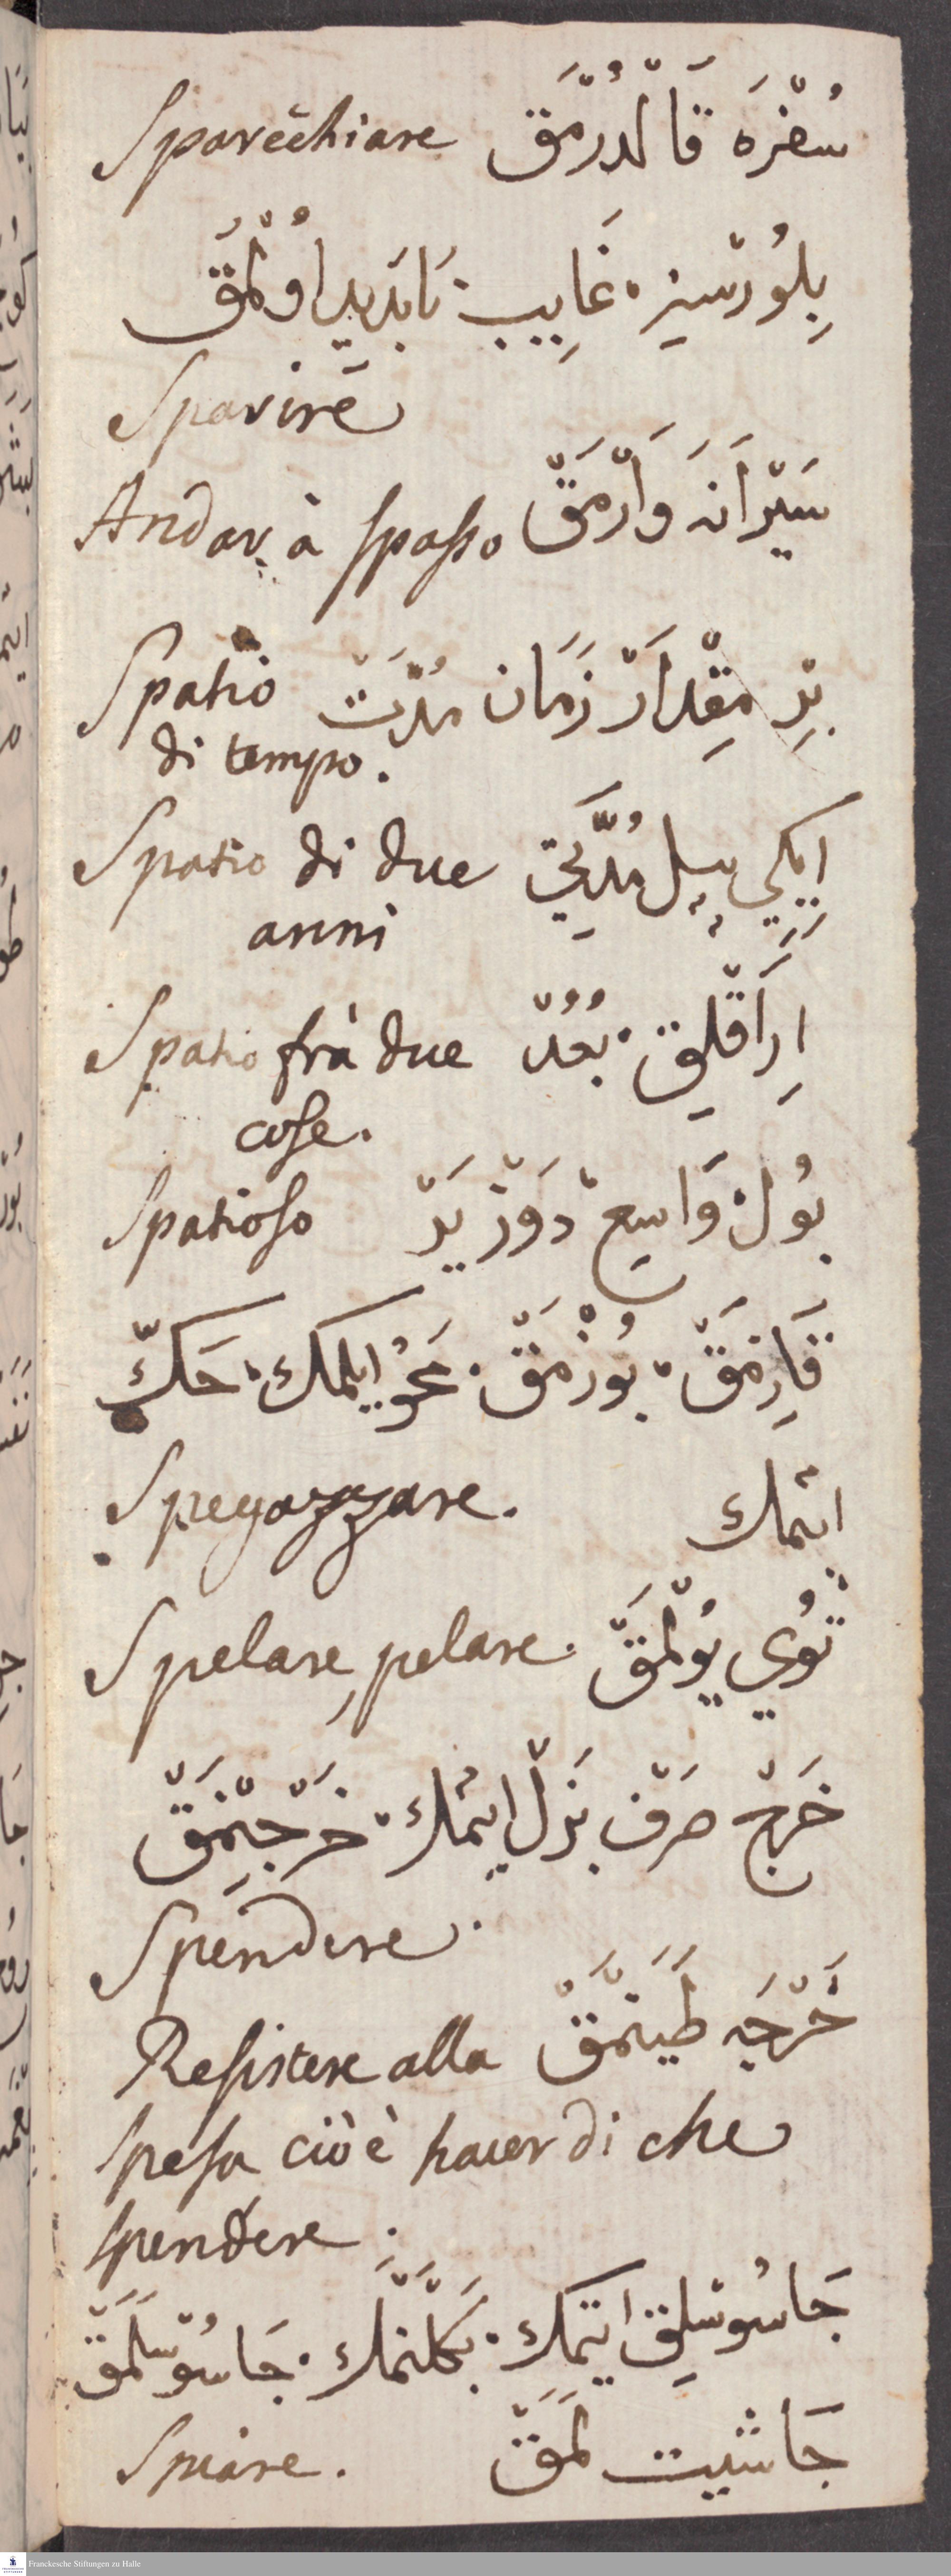 Sparechiare سُفْرَه قَالْدُرْمَق
بِلُورْسِيز · غَايِب · نَابَدِيد اوُلْمَق
Sparire
Andar à spasso سَيْرَانَه وَارْمَقْ
Spatio بِرْ مِقْدَارْ زَمَان مُدَّتْ
di tempo.
Spatio di due اِيكِي ييل مُدَّتِي
anni
Spatio frà due اِرَاقْلِق · بُعُدْ
cose.
Spatioso بُولْ · وَاسِعْ
قَازِمَقْ · بُوزْمَقْ · مَحُو ايلمك · حَكّ
Spegazzare. اتمك
Spelare, pelare. تُوي يُولْمَقْ
خَرْجْ صَرْف بَذْلْ اتمك · خَرْجِنْمَقْ
Spendere.
Resistere alla خَرْجَه طَيَنْمَقْ
spesa ciò è haver di che
spendere.
جَاسُوسْلِق ايتمك · بَكْلَنْمَك · جَاسُوسْلَمَقْ
Spiare. جَاشيت لَمَقْ
Franckesche Stiftungen zu Halle